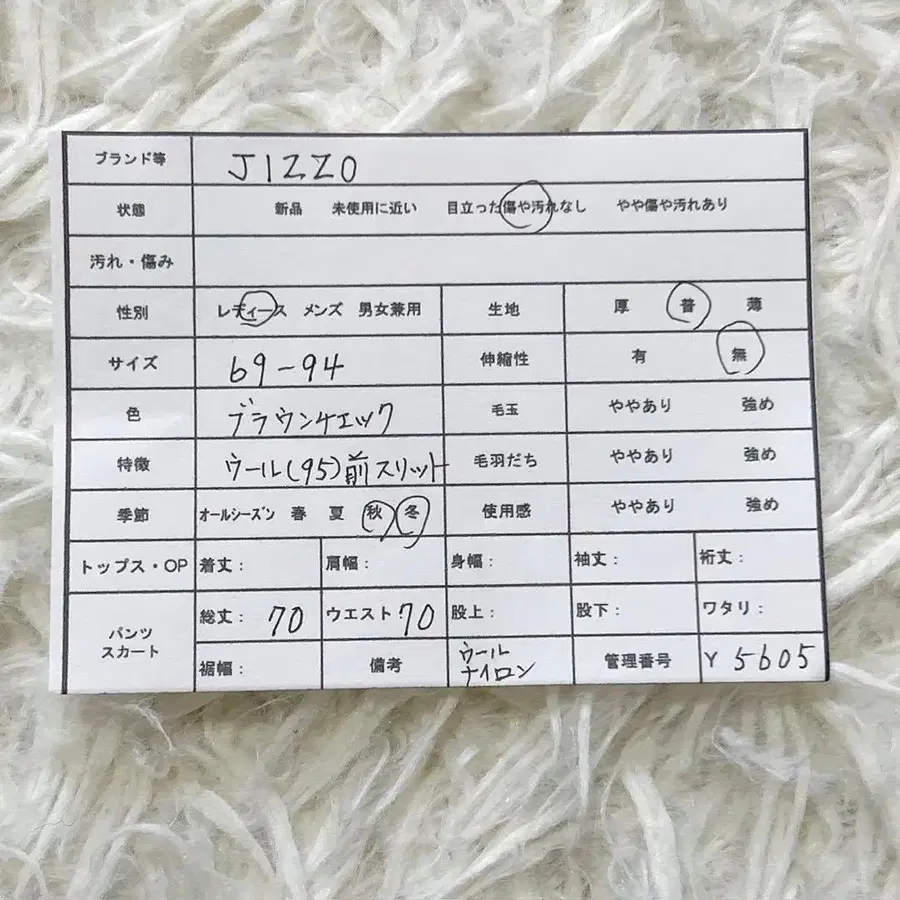 ブランド等 JIZZO
状態 新品 未使用に近い 目立った傷や汚れなし やや傷や汚れあり
汚れ・傷み
性別 レディース メンズ 男女兼用 生地 厚 普 薄
サイズ 69-94 伸縮性 有 無
色 ブラウンチェック 毛玉 ややあり 強め
特徴 ウール(95)前スリット 毛羽だち ややあり 強め
季節 オールシーズン 春 夏 秋 冬 使用感 ややあり 強め
トップス・OP 着丈: 肩幅: 身幅: 袖丈: 裄丈:
パンツ
スカート
総丈: 70 ウエスト:70 股上: 股下: ワタリ:
裾幅: 備考 ウール
ナイロン
管理番号 Y 5605